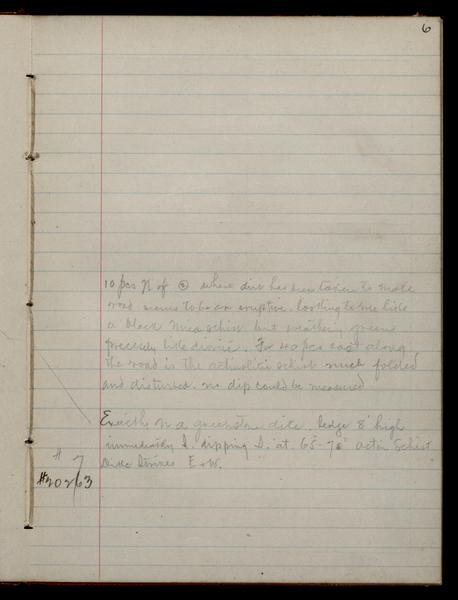 6
10 pcs N of ② where dirt has been taken to make
road seems to be an eruptive. looking to me like
a black mica schist but weathering green
precisely like diorite. For 40 pcs east along
the road is the actinolitic schist much folded
and disturbed. no dip could be measured
Exactly N a greenstone dike. ledge 8' high
immediately S. dipping S. at 65°-70° actin schist
Dike strikes E & W.
# 7
#20263